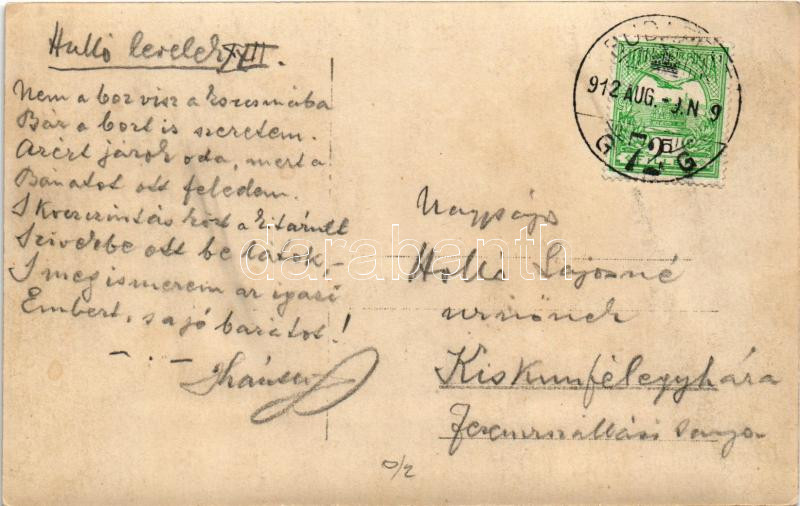 Hulló levelek XIII.
Nem a bor visz a korcsmába
Bár a bort is szeretem.
Azért járok oda, mert a
Bánatot ott feledem.
S Koczczintás közt a kitárult
Szivekbe ott be látok, –
S megismerem az igazi
Embert, s a jó barátot!
BUDAPEST
912 AUG. -9. N 9
5
Nagysága
Holló Lajosné
urnőnek
Kiskunfélegyháza
Ferenczszállási tanya
0/2
darabanth